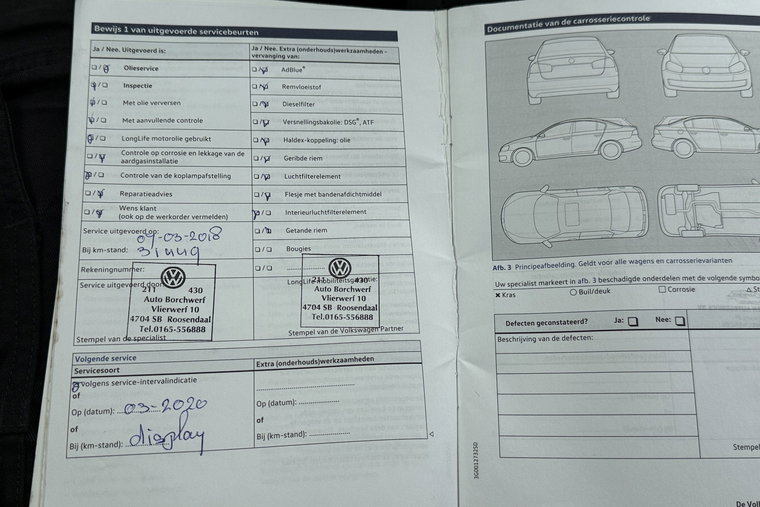 Bewijs 1 van uitgevoerde servicebeurten
Ja / Nee. Uitgevoerd is:
Olieservice
Inspectie
Met olie verversen
Met aanvullende controle
LongLife motorolie gebruikt
Controle op corrosie en lekkage van de
aardgasinstallatie
Controle van de koplampafstelling
Reparatieadvies
Wens klant
(ook op de werkorder vermelden)
Service uitgevoerd op:
07-03-2018
Bij km-stand:
Rekeningnummer:
Service uitgevoerd door:
211 430
Auto Borchwerf
Vlierwerf 10
4704 SB Roosendaal
Tel.0165-556888
Stempel van de specialist
Ja / Nee. Extra (onderhouds)werkzaamheden -
vervanging van:
AdBlue®
Remvloeistof
Dieselfilter
Versnellingsbakolie: DSG®, ATF
Haldex-koppeling: olie
Geribde riem
Luchtfilterelement
Flesje met bandenafdichtmiddel
Interieurluchtfilterelement
Getande riem
Bougies
LongLife mobiliteitsgarantie:
211 430
Auto Borchwerf
Vlierwerf 10
4704 SB Roosendaal
Tel.0165-556888
Stempel van de Volkswagen Partner
Volgende service
Servicesoort
volgens service-intervalindicatie
of
Op (datum): 03-2020
of
Bij (km-stand): display
Extra (onderhouds)werkzaamheden
Op (datum):
of
Bij (km-stand):
Documentatie van de carrosseriecontrole
Afb. 3 Principeafbeelding. Geldt voor alle wagens en carrosserievarianten
Uw specialist markeert in afb. 3 beschadigde onderdelen met de volgende symbo
Kras
Buil/deuk
Corrosie
St
Defecten geconstateerd? Ja: Nee:
Beschrijving van de defecten:
Stempel
3G0012732SD
De Vol